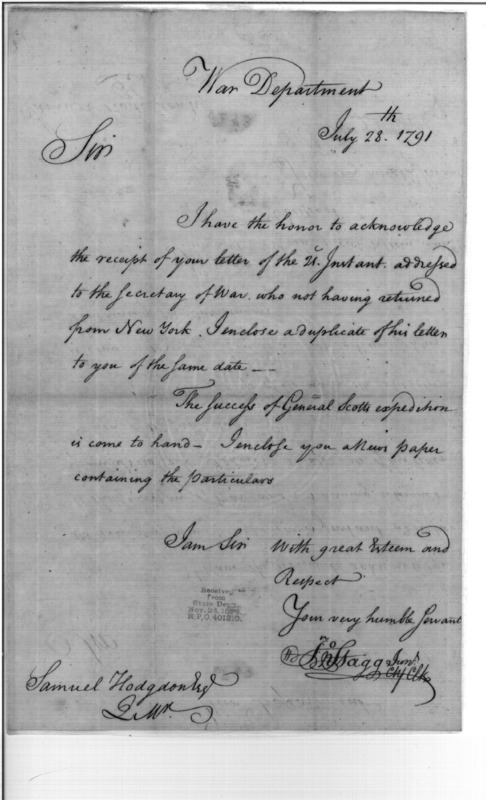 War Department
July 28.th 1791
Sir
I have the honor to acknowledge
the receipt of your letter of the 21. Instant. addressed
to the Secretary of War. who not having returned
from New York. I enclose a duplicate of his letter
to you of the same date —
The success of General Scotts expedition
is come to hand — I enclose you a News paper
containing the particulars
I am Sir With great Esteem and
Respect
Your very humble Servant
Jno Stagg Junr
Chf Clk
Received
from
State Dept.
Nov. 23,
Samuel Hodgdon Esqr
Q. Mr.